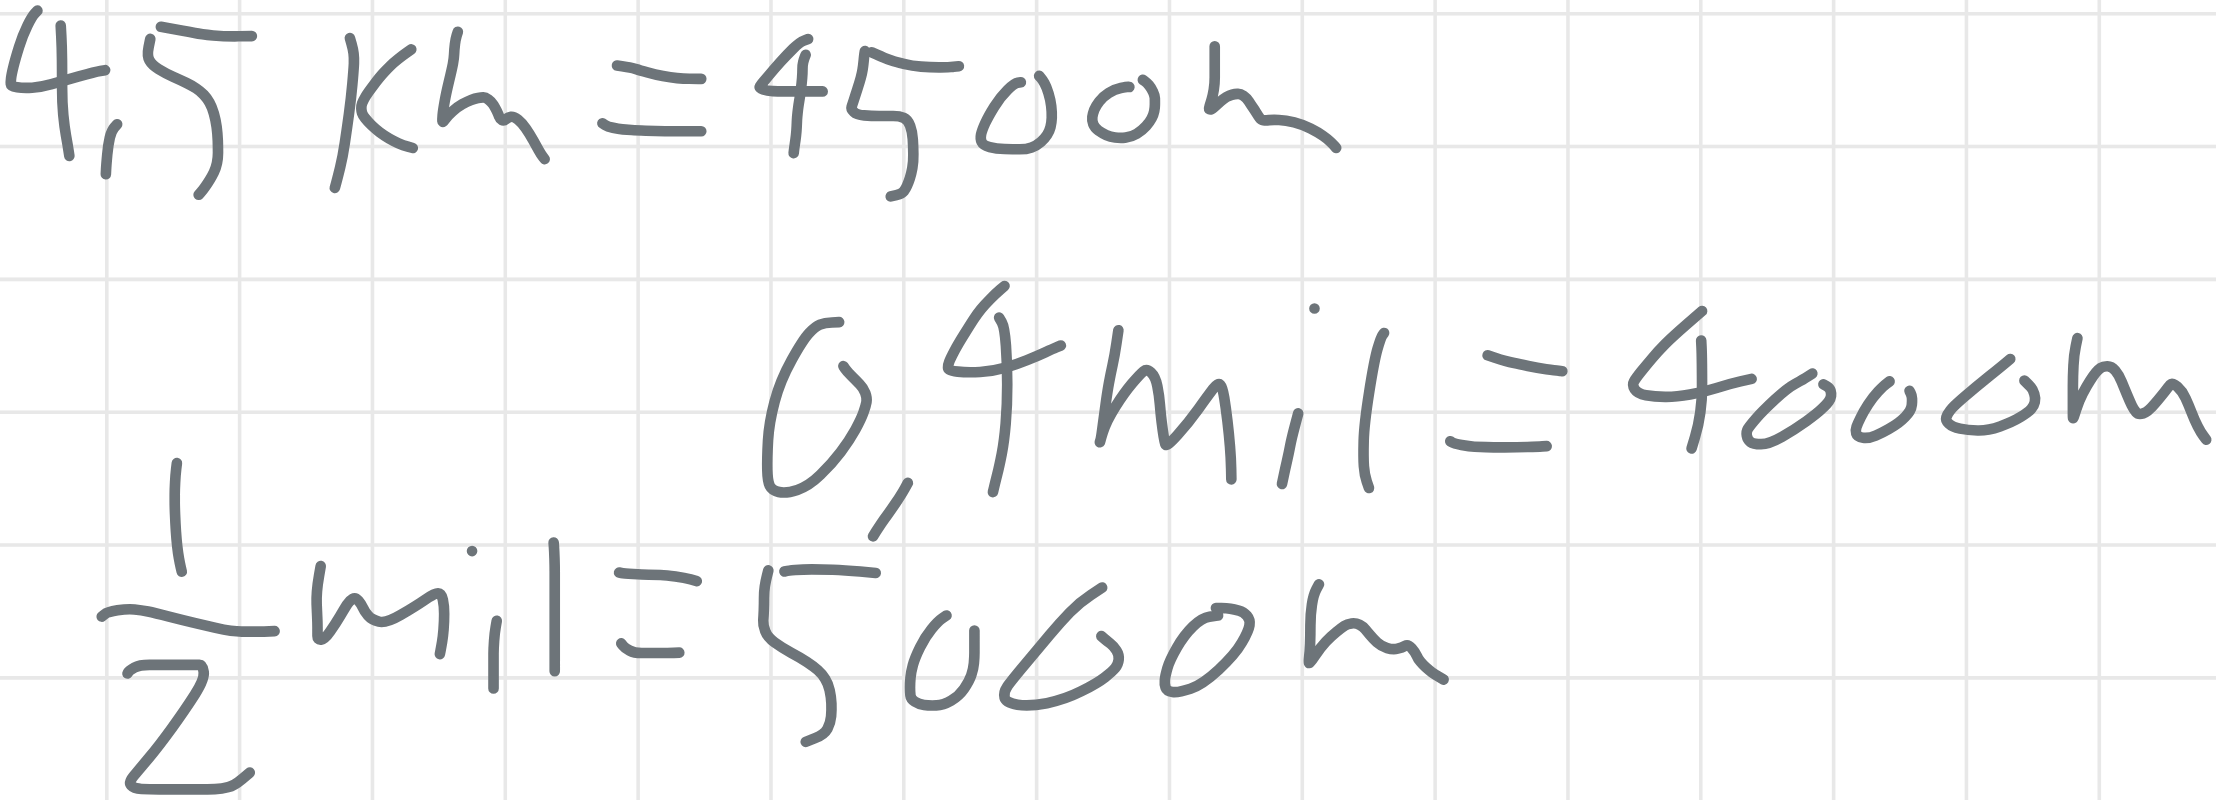 4,5 km = 4500m
0,4 mil = 4000m
1/2 mil = 5000m